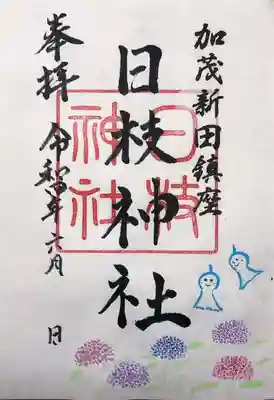 加茂新田鎮座
日枝神社
日枝神社
奉拝 令和四年六月 日